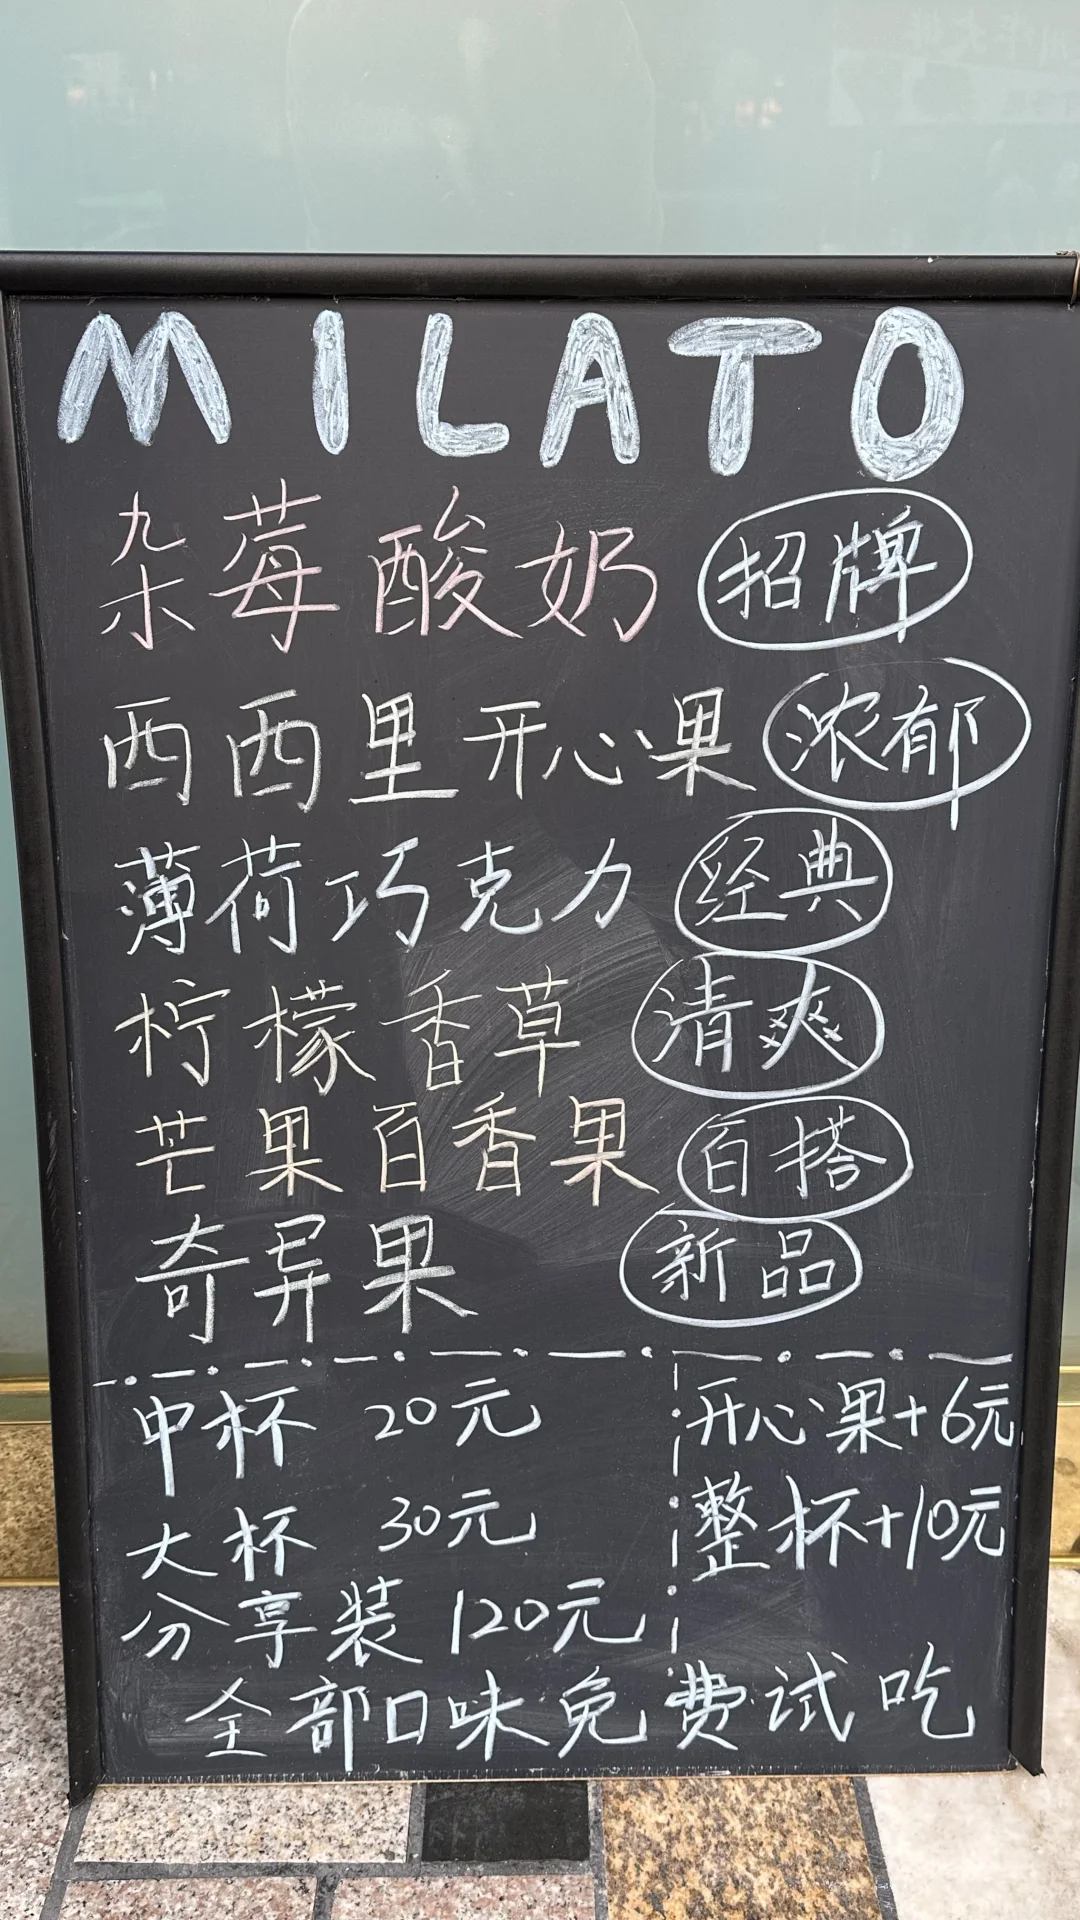 MILATO
杂莓酸奶 招牌
西西里开心果 浓郁
薄荷巧克力 经典
柠檬香草 清爽
芒果百香果 百搭
奇异果 新品
中杯 20元 开心果+6元
大杯 30元 整杯+10元
分享装 120元
全部口味免费试吃